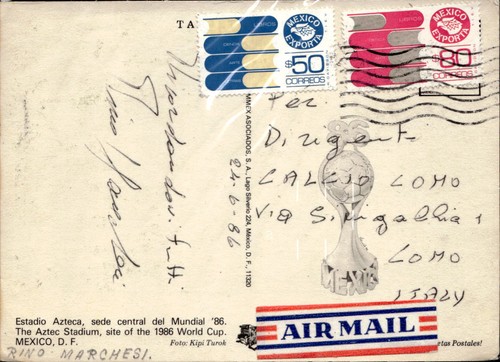 TA
MEXICO EXPORTA
$50
CORREOS
MEXICO EXPORTA
$80
CORREOS
Ricordandovi tutti
Rino Marchesi
MMEX ASOCIADOS, S.A., Lago Silverio 224, Mexico, D. F., 11320
24-6-86
Per
Dirigenti
CALCIO COMO
Via Sinigallia 1
COMO
ITALY
MEXICO
AIR MAIL
Estadio Azteca, sede central del Mundial '86.
The Aztec Stadium, site of the 1986 World Cup.
MEXICO, D. F.
Foto: Kipi Turok
etas Postales!
RINO MARCHESI.